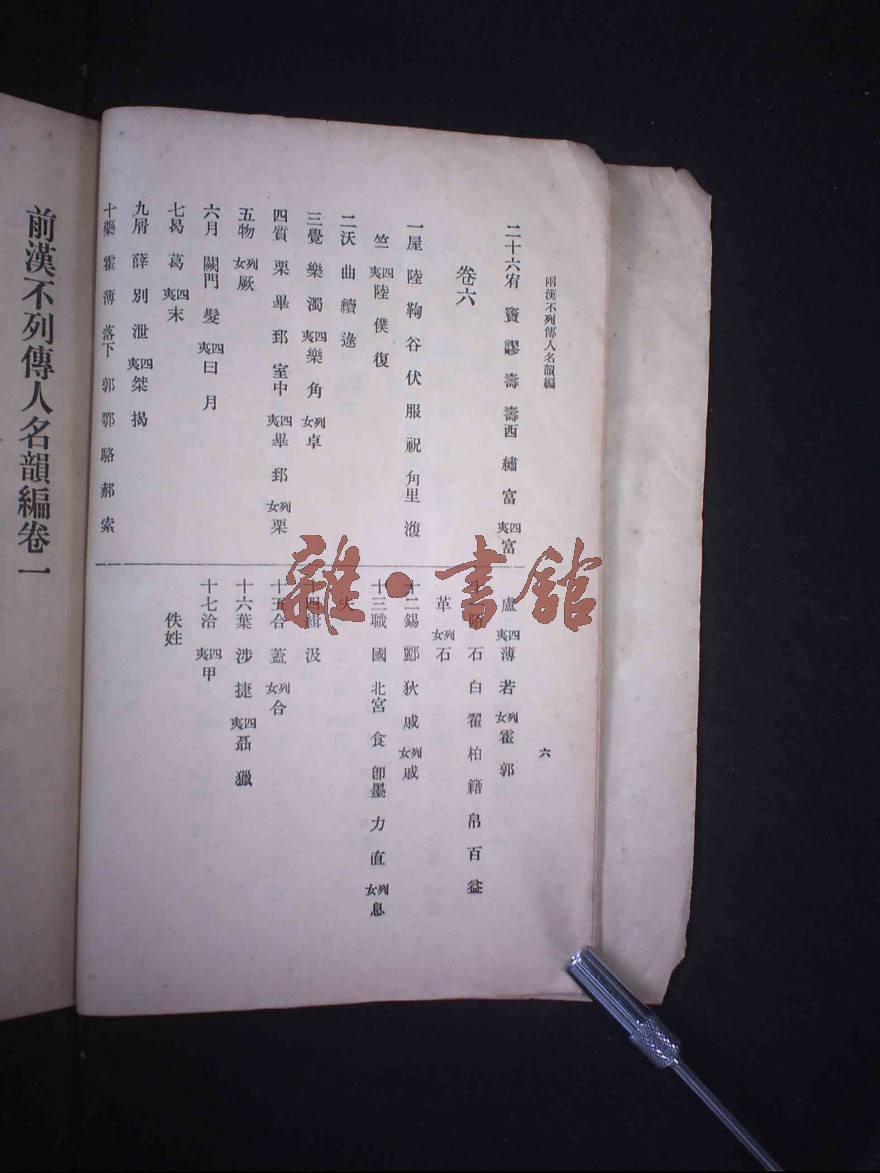 兩漢不列傳人名韻編
二十六宥 竇 謬 壽 壽西 繡 富 四夷富
卷六
一屋 陸 鞠 谷 伏 服 祝 角里 澓
竺 四夷陸 僕 復
二沃 曲 續 逯
三覺 樂 濁 四夷樂 角 列女卓
四質 栗 畢 郅 室中 四夷畢 郅 列女栗
五物 列女厥
六月 闕門 髮 四夷曰 月
七曷 葛 四夷末
九屑 薛 別 泄 四夷桀 揭
十藥 霍 薄 落下 郭 鄂 駱 郝 索
盧 四夷薄 若 列女霍 郭
陌 石 白 翟 柏 籍 帛 百 益
革 列女石
十二錫 酈 狄 戚 列女戚
十三職 國 北宮 食 卽墨 力 直 列女息
夫
十四緝 汲
十五合 蓋 列女合
十六葉 涉 捷 四夷聶 獵
十七洽 四夷甲
佚姓
六
前漢不列傳人名韻編卷一
雜·書館